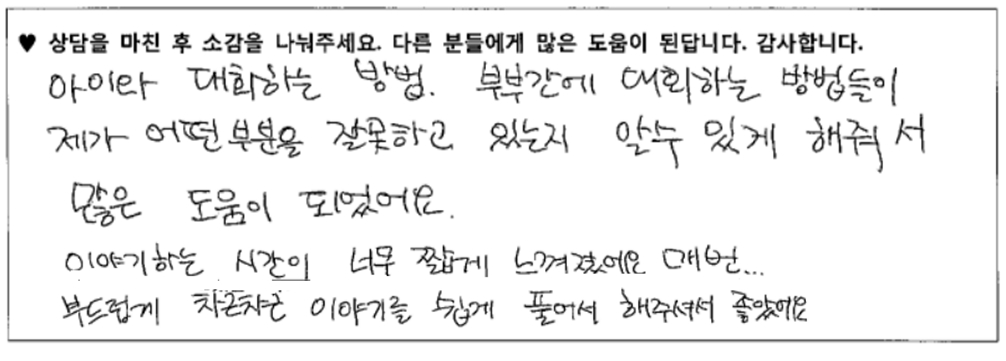 ♥ 상담을 마친 후 소감을 나눠주세요. 다른 분들에게 많은 도움이 된답니다. 감사합니다.
아이와 대화하는 방법. 부부간에 대화하는 방법들이
제가 어떤 부분을 잘못하고 있는지 알수 있게 해줘서
많은 도움이 되었어요.
이야기하는 시간이 너무 짧게 느껴졌어요 매번...
부드럽게 차근차근 이야기를 쉽게 풀어서 해주셔서 좋았어요